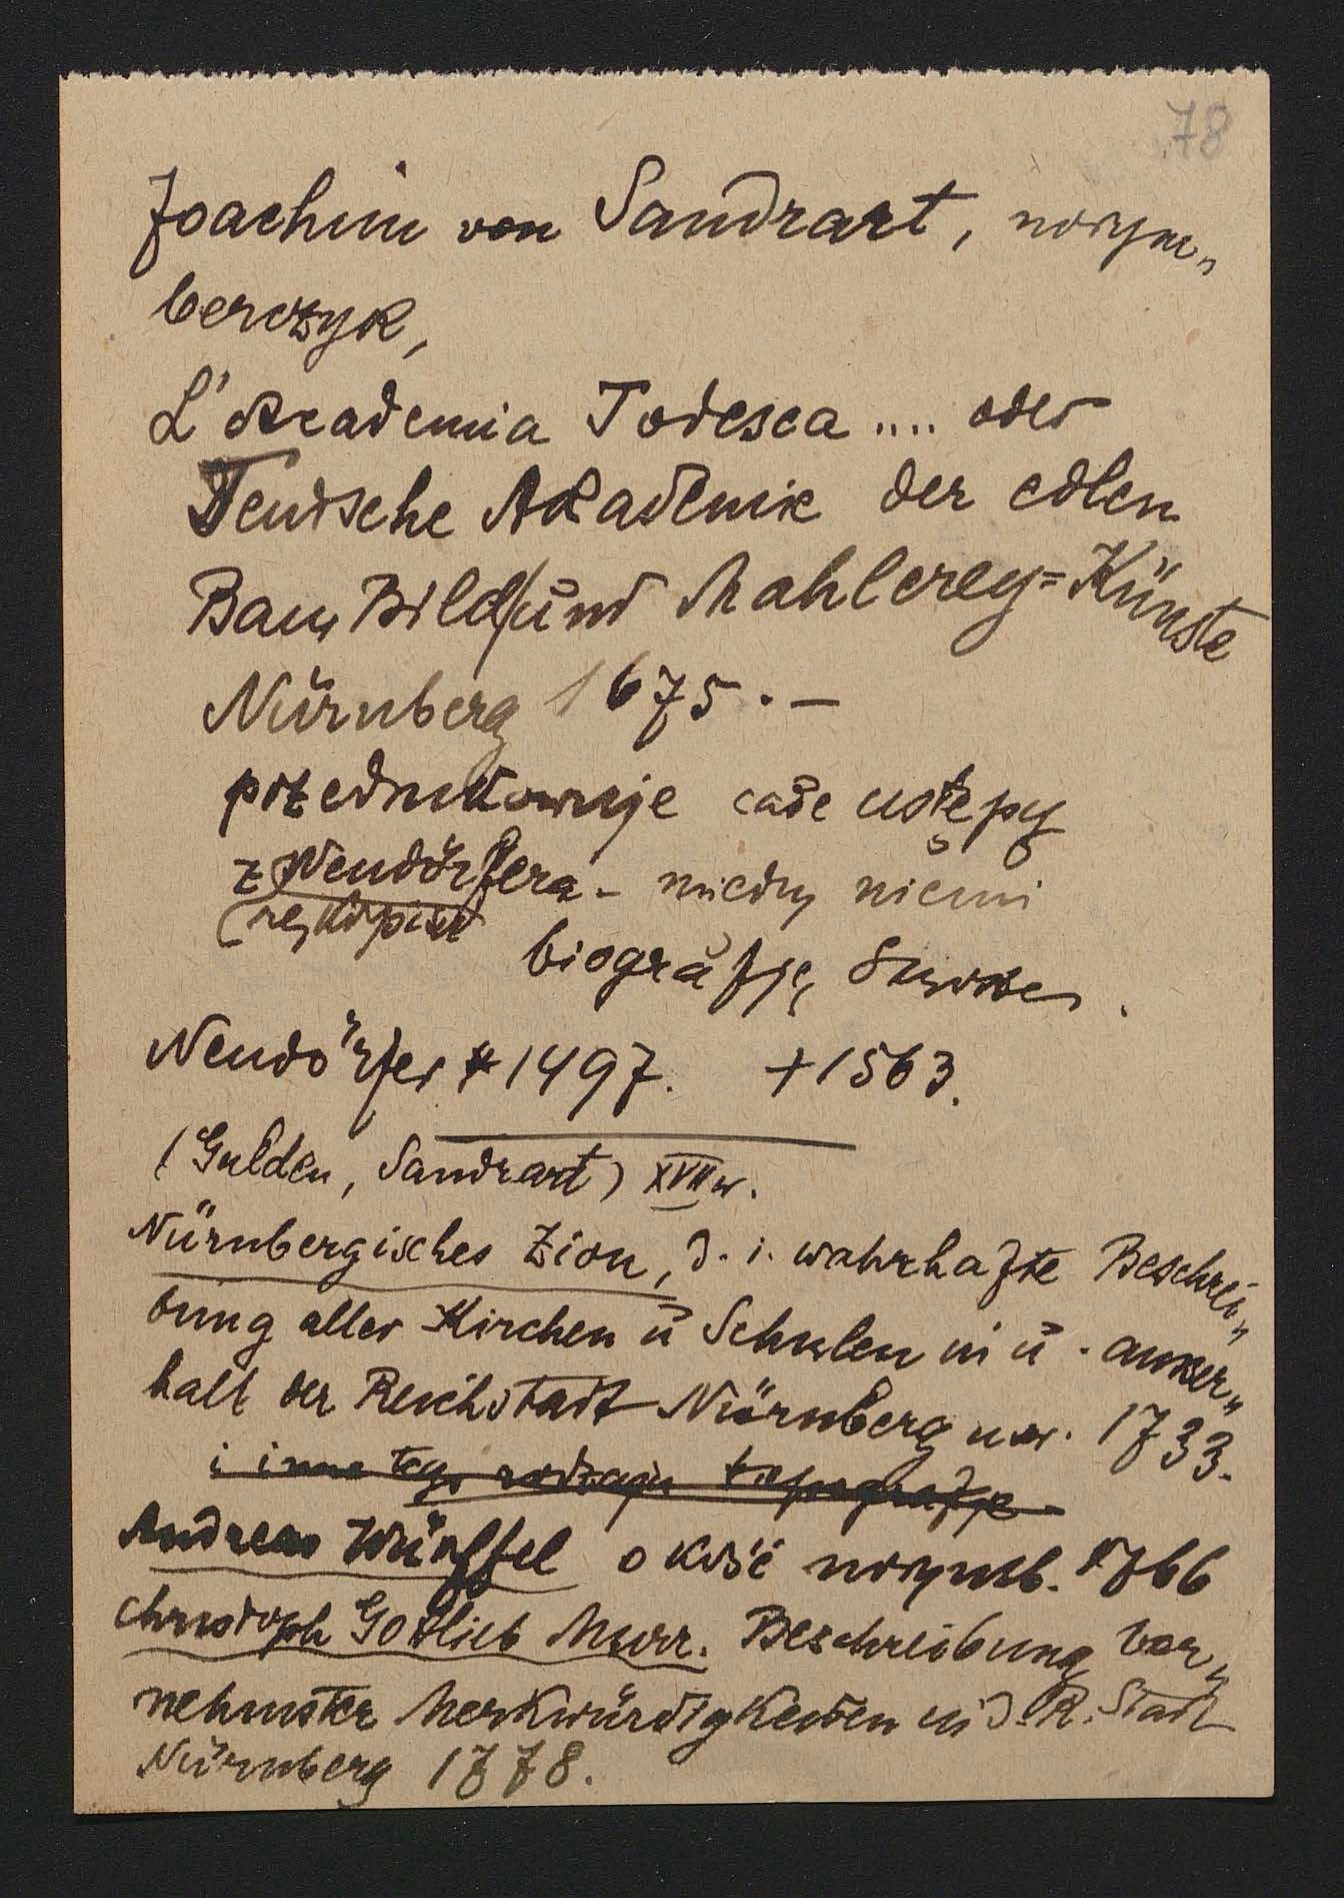 78
Joachim von Sandrart, norym„
berczyk,
L'Academia Todesca .... oder
Teutsche Akademie der edlen
Bau, Bild/und Mahlerey=Künste
Nürnberg 1675. —
przedrukowuje całe ustępy
z Neudörfera – między niemi
(rękopisu
biografję Stwosza.
Neudörfer * 1497. + 1563.
(Gulden, Sandrart) XVII w.
Nürnbergisches Zion, d. i. wahrhafte Beschrei„
bung aller Kirchen ŭ Schulen in ŭ. ausser„
halb der Reichstadt Nürnberg usw. 1733.
i inne tego rodzaju topografje
Andreas Würffel o kość norymb. 1766
Christoph Gottlieb Murr. Beschreibung vor„
nehmster Merkwürdigkeiten in d. R. Stadt
Nürnberg 1778.